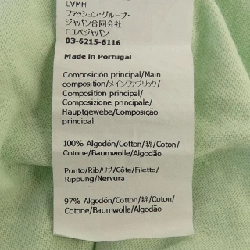 LVMH
ファッション・グループ・
ジャパン合同会社
ロエベジャパン
03-6215-6116
Made in Portugal
Composición principal/Main
composition/メインファブリック/
Composition principale/
Composizione principale/
Hauptgewebe/Composição
principal
100% Algodón/Cotton/綿/Coton/
Cotone/Baumwolle/Algodão
Punto/Rib/リブ/Côte/Filette/
Rippung/Nervura
97% Algodón/Cotton/綿/Coton/
Cotone/Baumwolle/Algodão